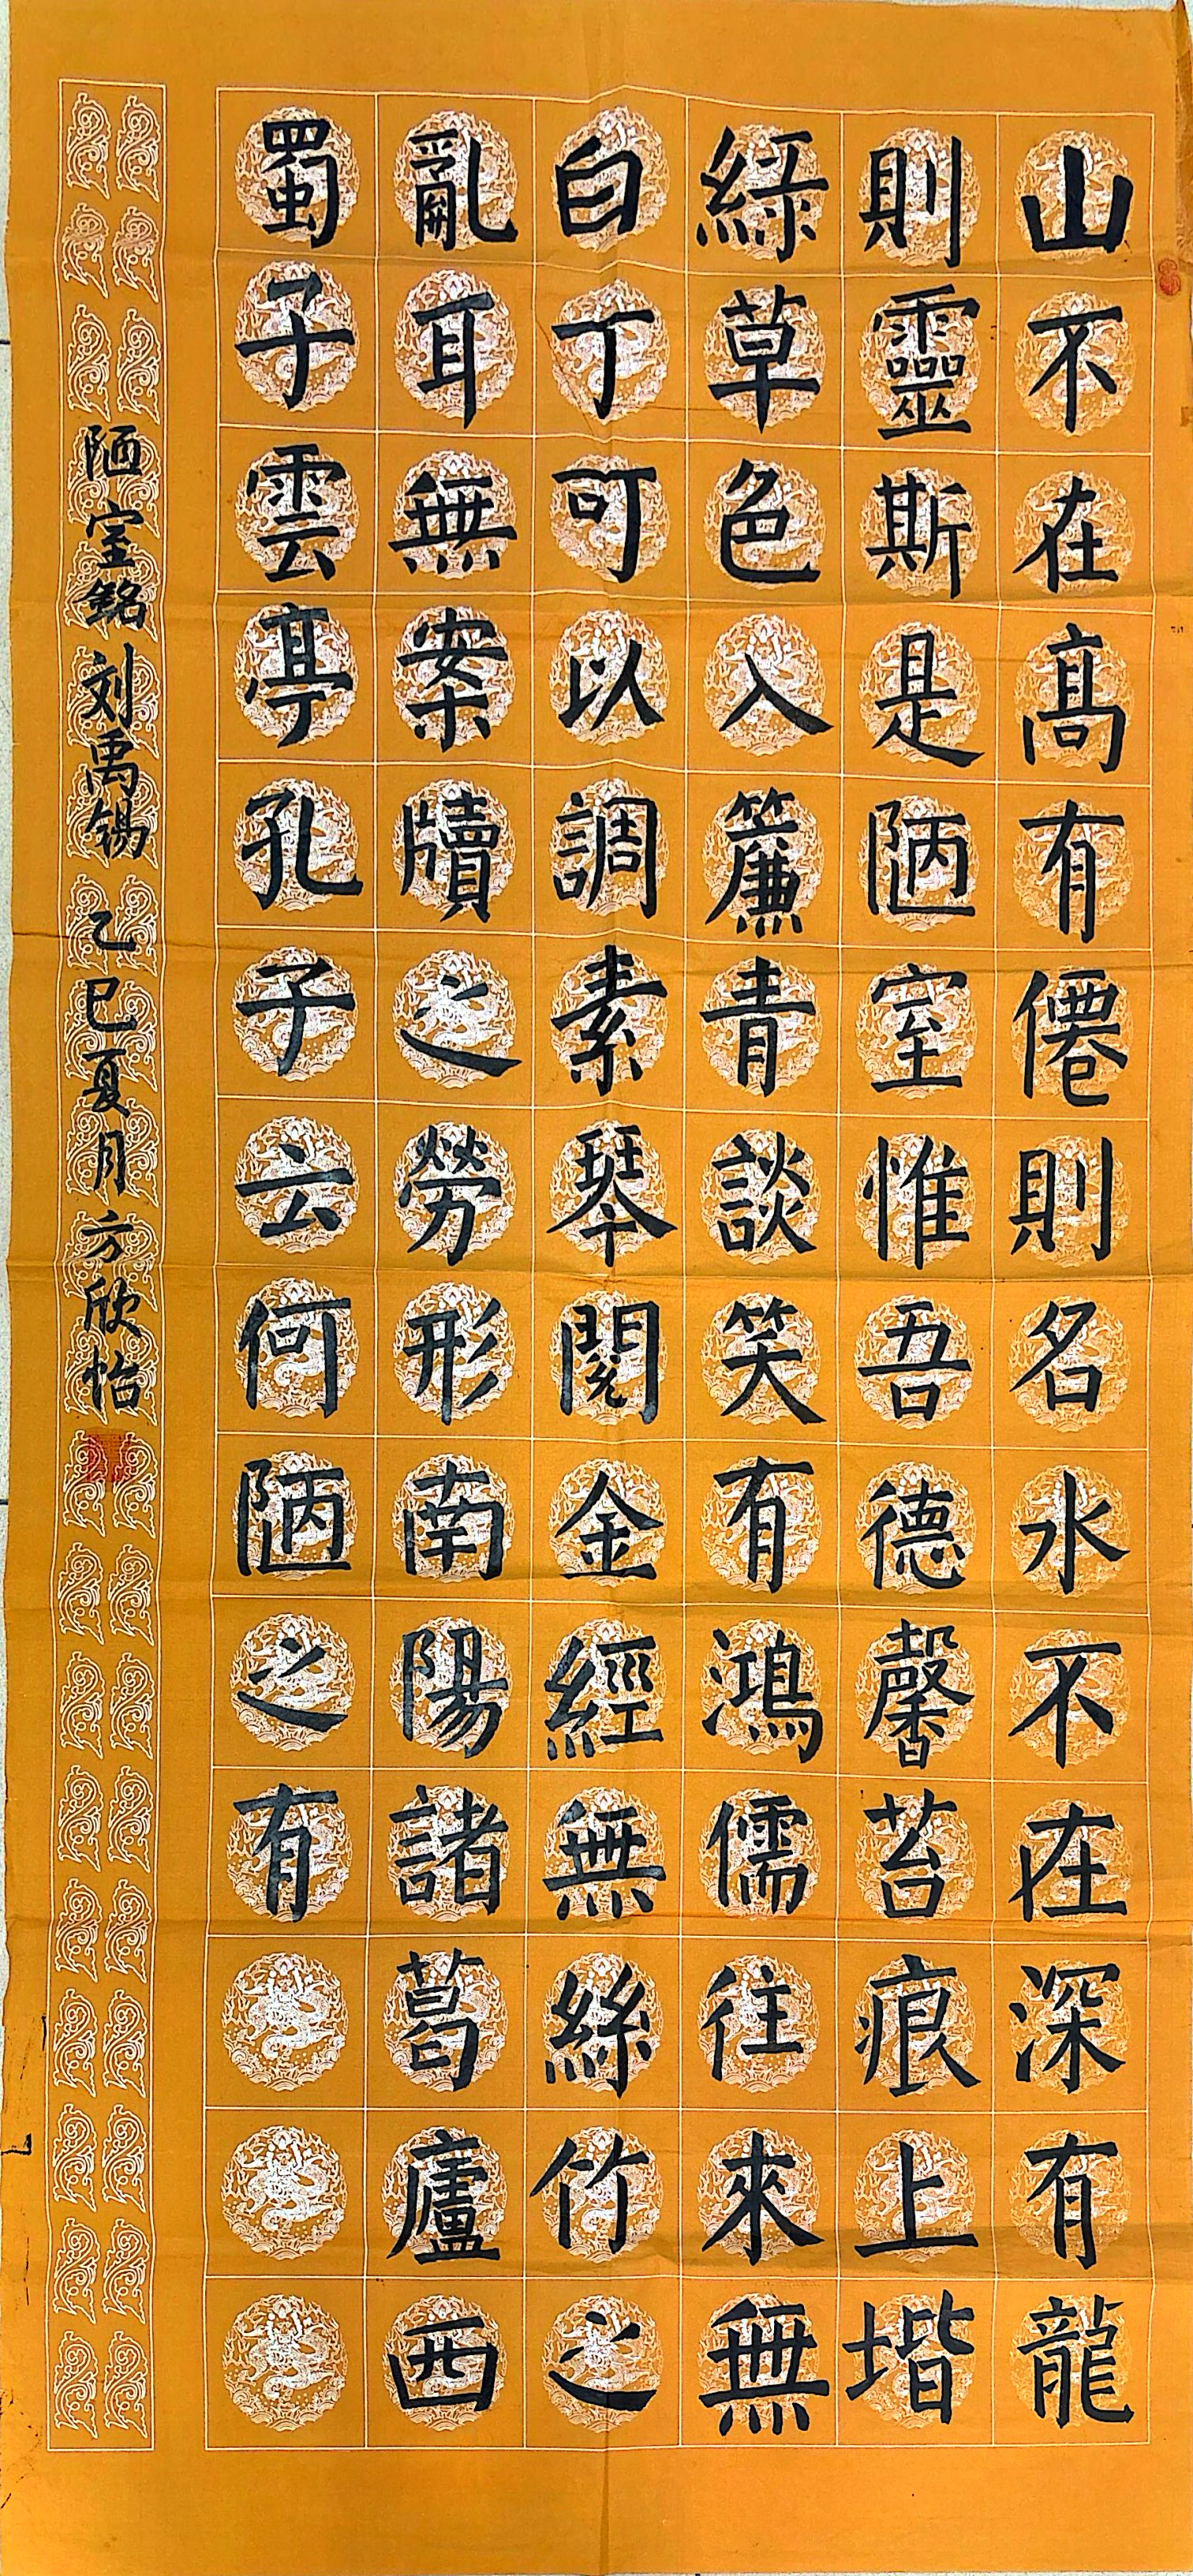 山不在髙有僊則名水不在深有龍
則靈斯是陋室惟吾德馨苔痕上堦
綠草色入簾青談笑有鴻儒往來無
白丁可以調素琴閱金經無絲竹之
亂耳無案牘之勞形南陽諸葛廬西
蜀子雲亭孔子云何陋之有
陋室銘 刘禹锡 乙巳夏月 方欣怡